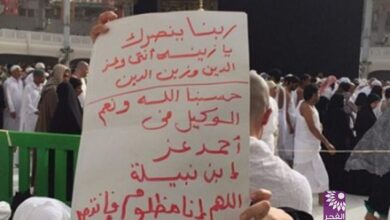 ربنا ينصرك
يا زينه أنتى وعز
الدين وزين الدين
حسبنا الله ونعم
الوكيل فى
أحمد عز
إبن نبيلة
اللهم إنا مظلوم فانتصر
الفجر